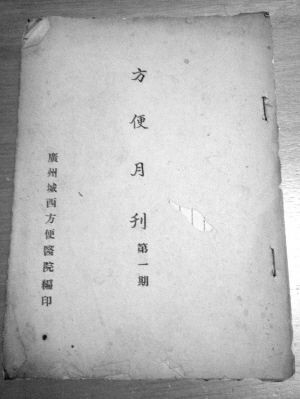 方便月刊
第一期
廣州城西方便醫院編印